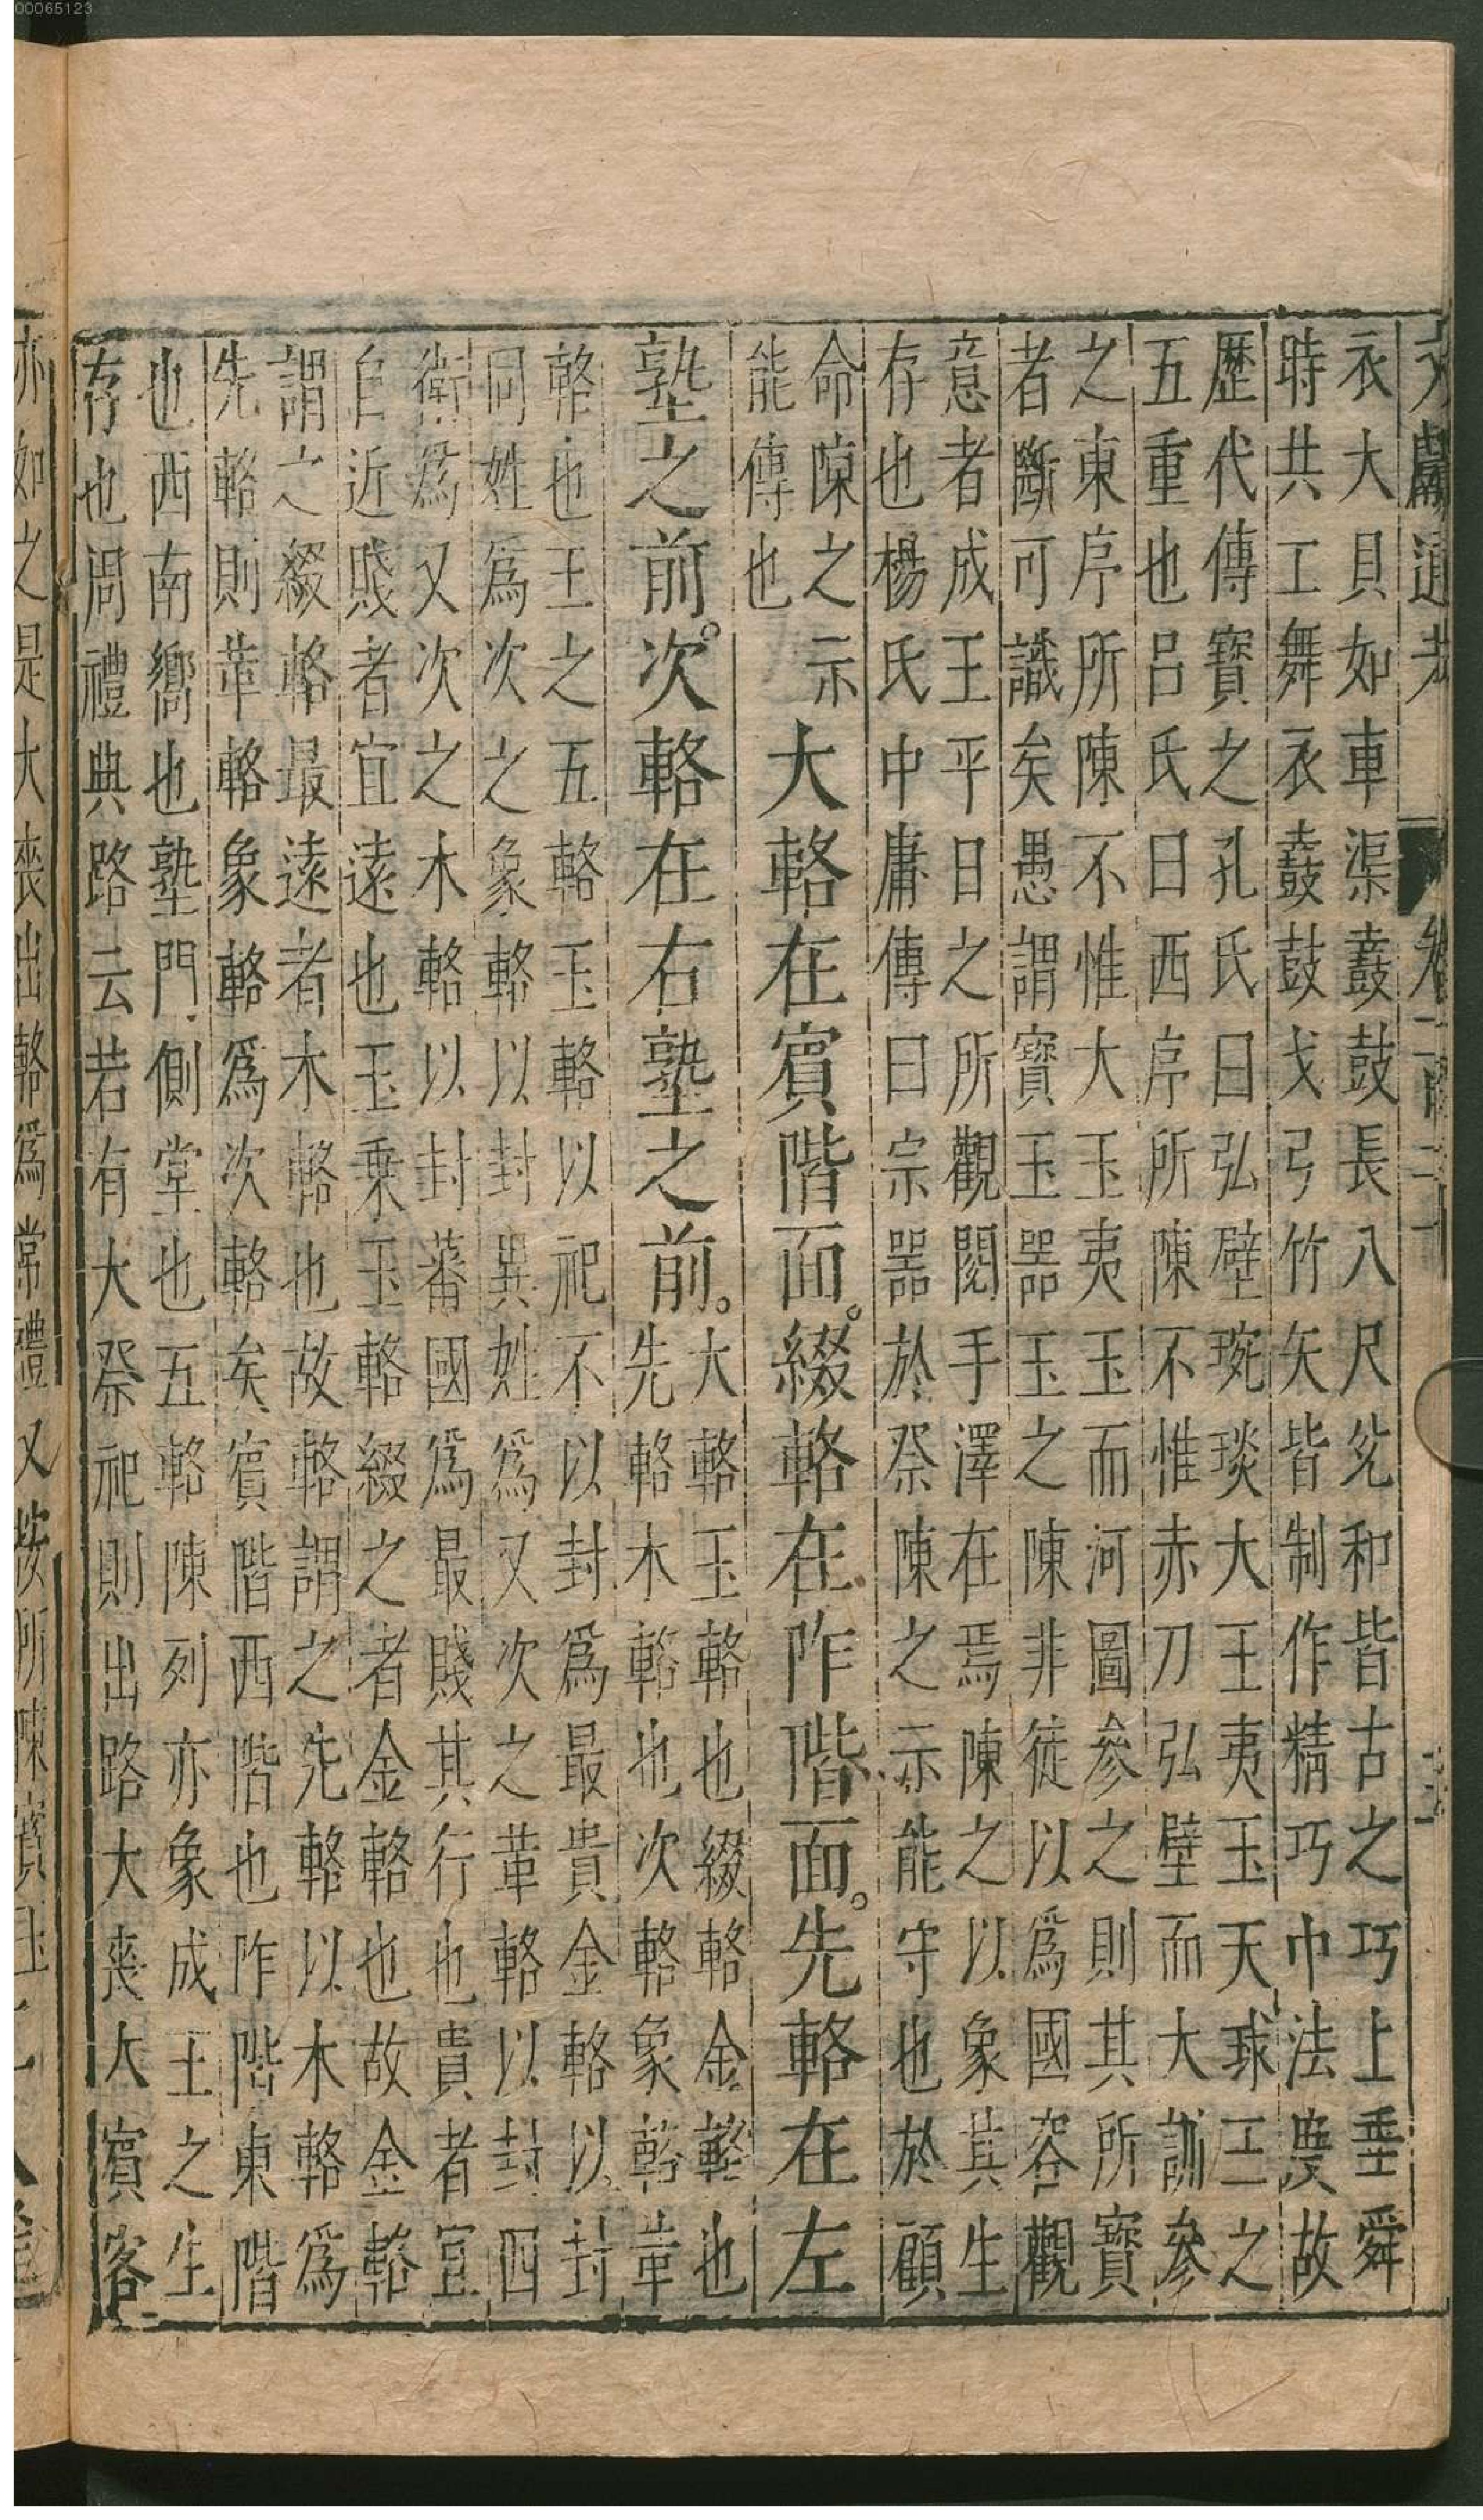 文獻通考 卷一百二十一
衣大貝如車渠鼖鼓長八尺兊和皆古之巧上垂舜
時共工舞衣鼖鼓戈弓竹矢皆制作精巧中法度故
歷代傳寶之孔氏曰弘壁琬琰大王夷玉天球三之
五重也呂氏曰西序所陳不惟赤刀弘壁而大訓參
之東序所陳不惟大玉夷玉而河圖參之則其所寶
者斷可識矣愚謂寶玉器玉之陳非徒以爲國容觀
意者成王平日之所觀閱手澤在焉陳之以象其生
存也楊氏中庸傳曰宗器於祭陳之示能守也於顧
命陳之示
能傳也
大輅在賓階面。綴輅在阼階面。先輅在左
塾之前。次輅在右塾之前。
大輅玉輅也綴輅金輅也
先輅木輅也次輅象輅革
輅也王之五輅玉輅以祀不以封爲最貴金輅以封
同姓爲次之象輅以封異姓爲又次之革輅以封四
衛爲又次之木輅以封蕃國爲最賤其行也貴者宜
自近賤者宜遠也玉乘玉輅綴之者金輅也故金輅
謂之綴輅最遠者木輅也故輅謂之先輅以木輅爲
先輅則革輅象輅爲次輅矣賓階西階也阼階東階
也西南嚮也塾門側堂也五輅陳列亦象成王之生
存也周禮典路云若有大祭祀則出路大喪大賓客
亦如之是大喪出輅爲常禮又按所陳寶玉
00065123